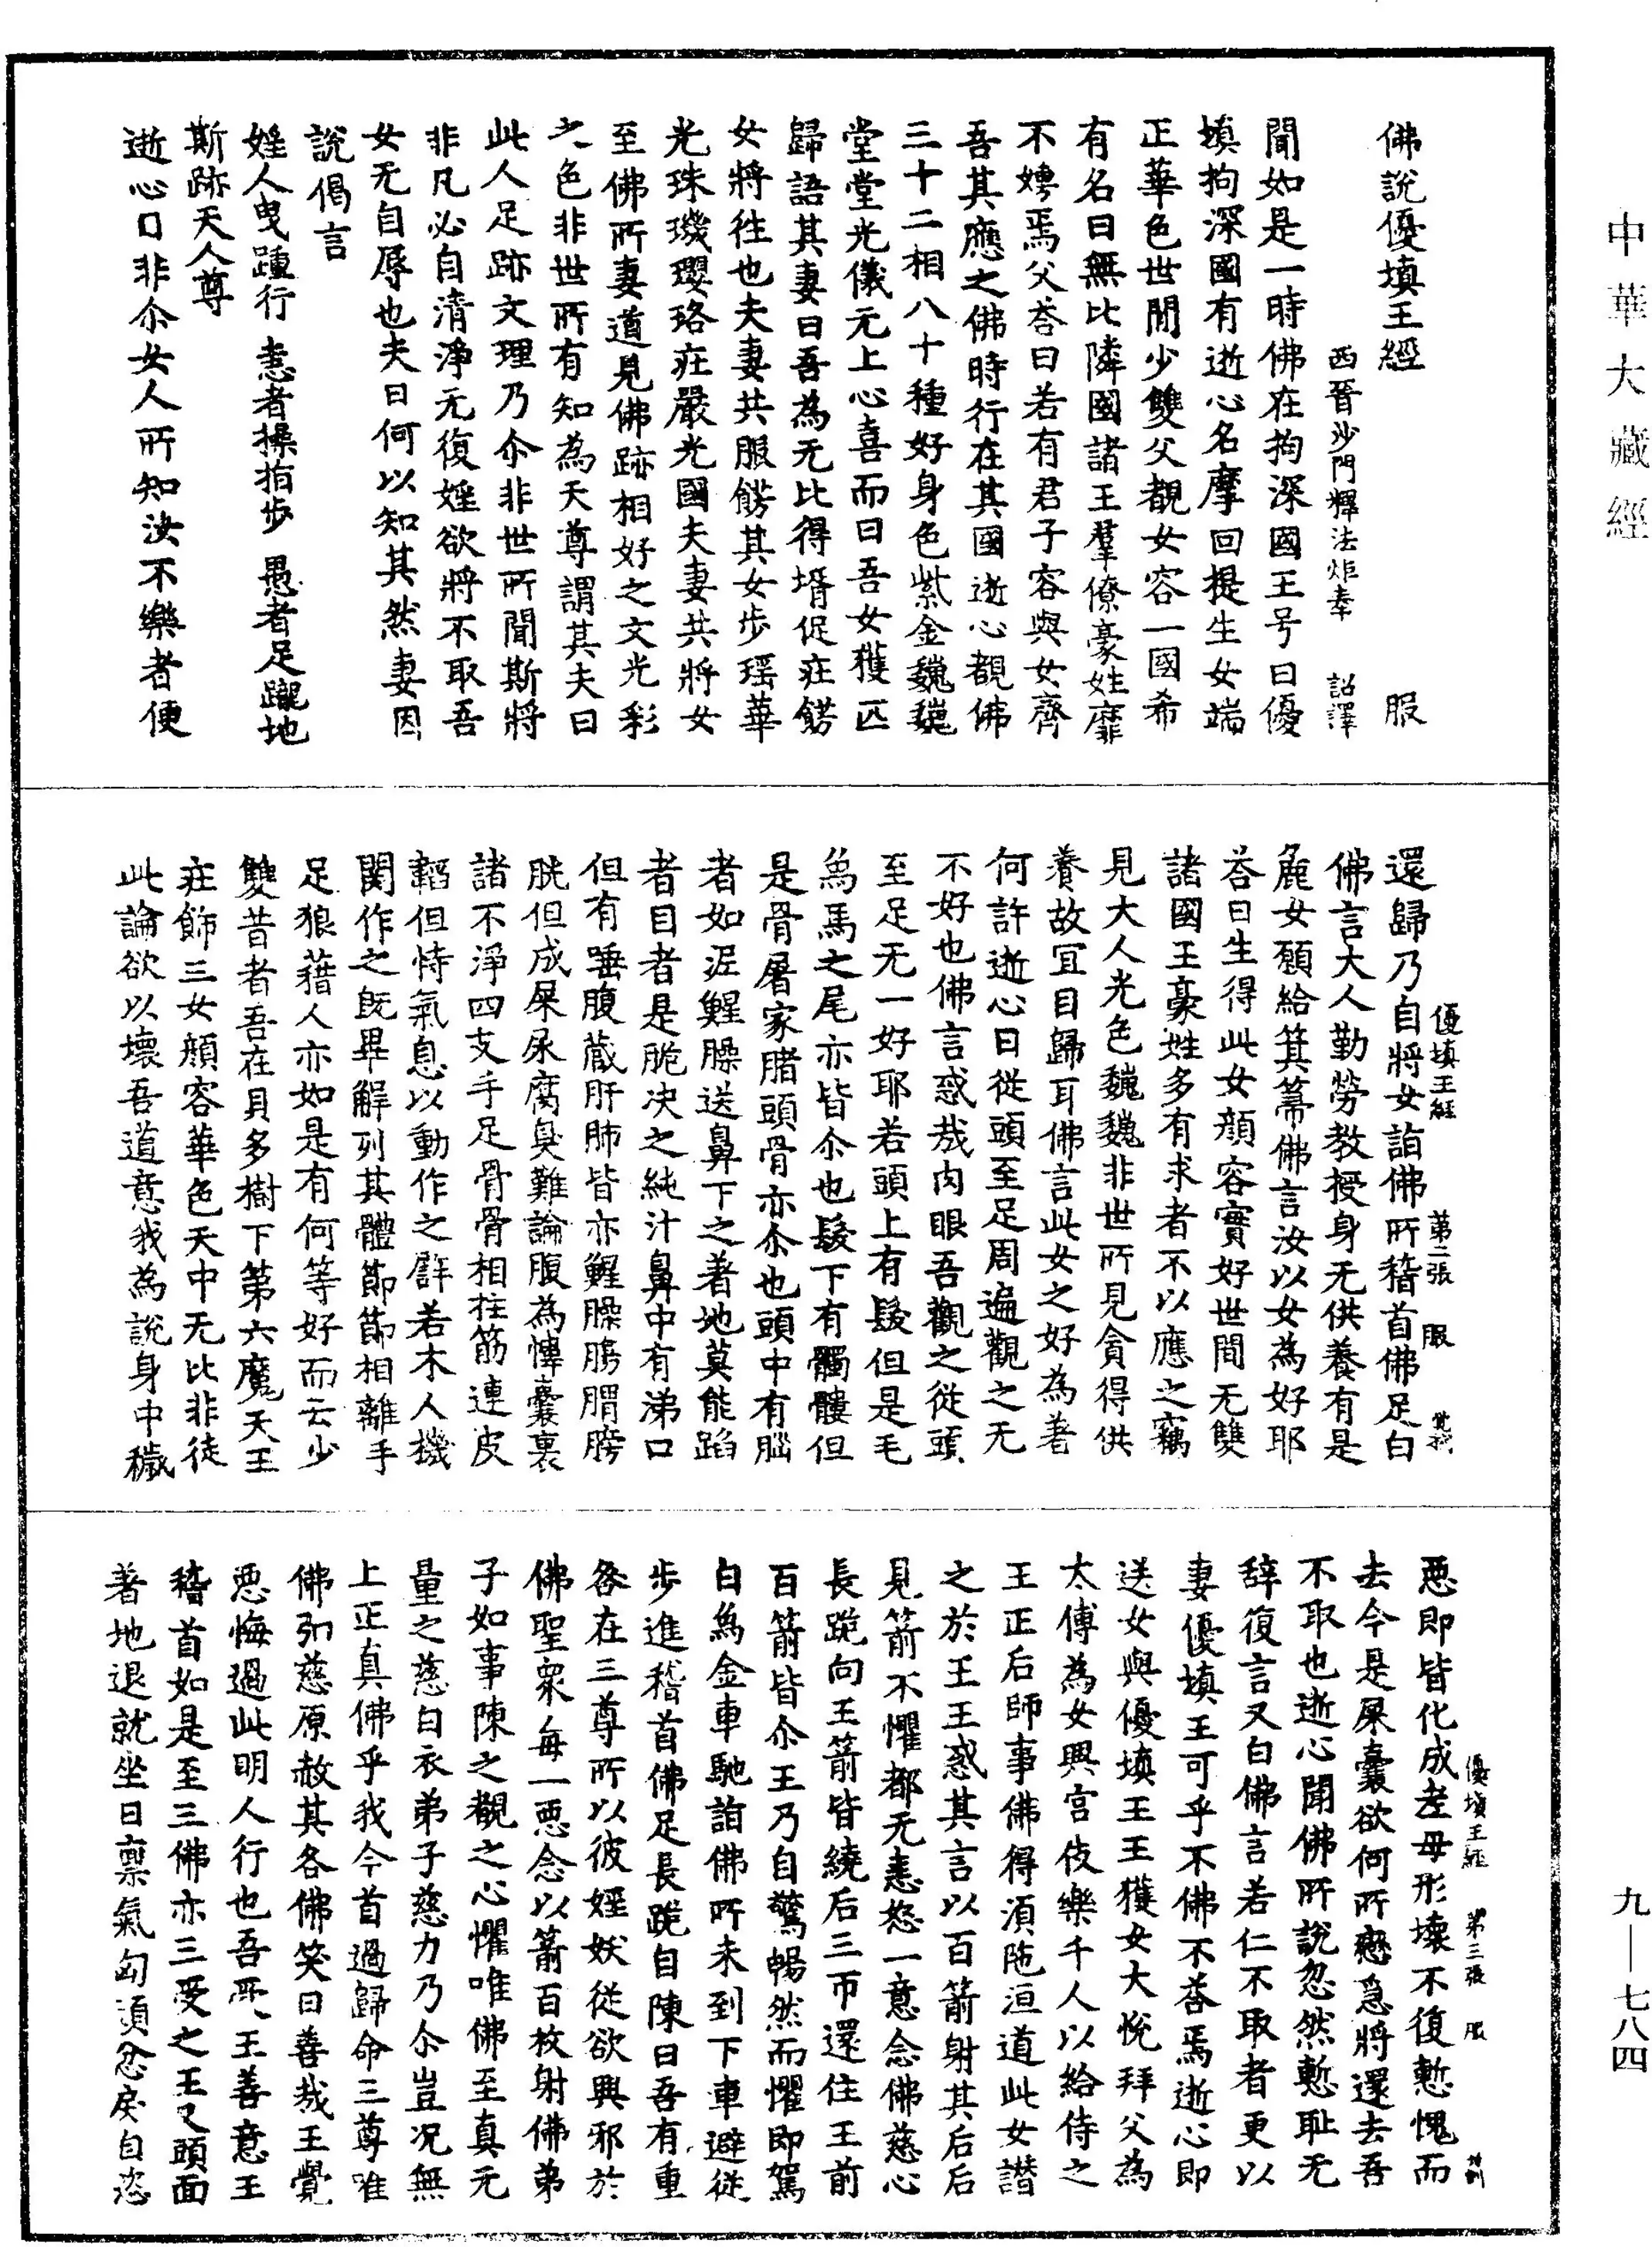 中華大藏經
佛說優填王經　服
西晉沙門釋法炬奉　詔譯
聞如是一時佛在拘深國王号曰優
填拘深國有逝心名摩回提生女端
正華色世間少雙父覩女容一國希
有名曰無比隣國諸王羣僚豪姓靡
不娉焉父荅曰若有君子容與女齊
吾其應之佛時行在其國逝心覩佛
三十二相八十種好身色紫金巍巍
堂堂光儀无上心喜而曰吾女獲匹
歸語其妻曰吾為无比得壻促莊餝
女將往也夫妻共服餝其女步瑶華
光珠璣瓔珞莊嚴光國夫妻共將女
至佛所妻道見佛跡相好之文光彩
之色非世所有知為天尊謂其夫曰
此人足跡文理乃尒非世所聞斯將
非凡必自清淨无復婬欲將不取吾
女无自辱也夫曰何以知其然妻因
說偈言
婬人曳踵行　恚者操指步　愚者足蹴地
斯跡天人尊
逝心曰非尒女人所知汝不樂者便
優填王經　第二張　服
還歸乃自將女詣佛所稽首佛足白
佛言大人勤勞教授身无供養有是
麁女願給箕箒佛言汝以女為好耶
荅曰生得此女顏容實好世間无雙
諸國王豪姓多有求者不以應之竊
見大人光色巍巍非世所見貪得供
養故冝目歸耳佛言此女之好為著
何許逝心曰從頭至足周遍觀之无
不好也佛言惑哉肉眼吾觀之從頭
至足无一好耶若頭上有髮但是毛
鳥馬之尾亦皆尒也髮下有髑髏但
是骨屠家腊頭骨亦尒也頭中有腦
者如泥鯹臊逆鼻下之著地莫能蹈
者目者是脆决之純汁鼻中有涕口
但有唾腹藏肝肺皆亦鯹臊腸胃膀
胱但成屎尿腐臭難論腹為慱囊裹
諸不淨四支手足骨骨相拄筋連皮
韜但恃氣息以動作之譬若木人機
関作之既畢解列其體節節相離手
足狼藉人亦如是有何等好而云少
雙昔者吾在貝多樹下第六魔天王
莊飾三女顏容華色天中无比非徒
此論欲以壞吾道意我為說身中穢
優填王經　第三張　服
惡即皆化成老母形壞不復慙愧而
去今是屎囊欲何所戀急將還去吾
不取也逝心聞佛所說忽然慙耻无
辞復言又白佛言若仁不取者更以
妻優填王可乎不佛不荅焉逝心即
送女與優填王王獲女大悅拜父為
太傅為女興宮伎樂千人以給侍之
王正后師事佛得湏陁洹道此女譖
之於王王惑其言以百箭射其后后
見箭不懼都无恚怒一意念佛慈心
長跪向王箭皆繞后三帀還住王前
百箭皆尒王乃自驚暢然而懼即駕
白象金車馳詣佛所未到下車避從
步進稽首佛足長跪自陳曰吾有重
咎在三尊所以彼婬妖從欲興邪於
佛聖衆每一惡念以箭百枚射佛弟
子如事陳之覩之心懼唯佛至真无
量之慈白衣弟子慈力乃尒豈况無
上正真佛乎我今首過歸命三尊唯
佛弘慈原赦其咎佛笑曰善哉王覺
惡悔過此明人行也吾受王善意王
稽首如是至三佛亦三受之王又頭面
著地退就坐曰禀氣匈頑忿戾自恣
九—七八四